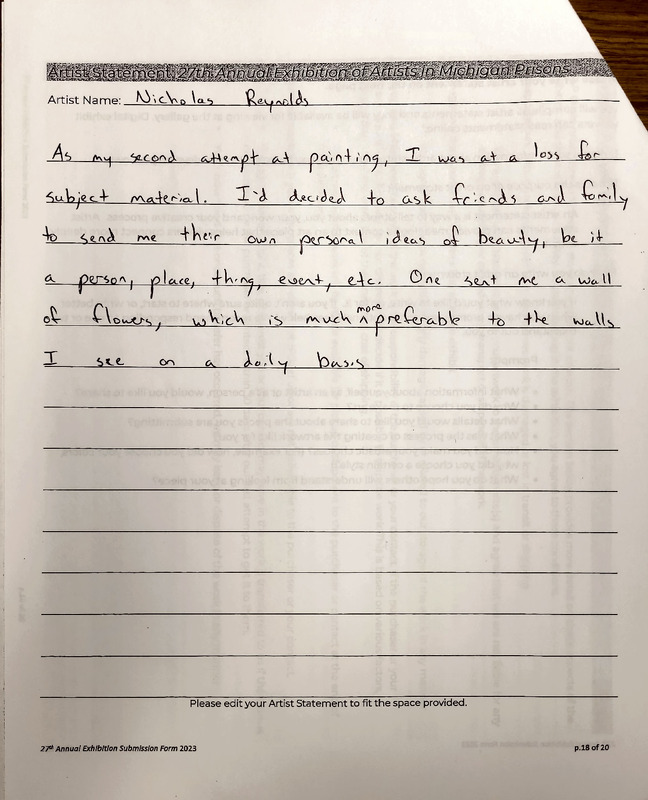 Artist Statement, 27th Annual Exhibition of Artists in Michigan Prisons
Artist Name: Nicholas Reynolds
As my second attempt at painting, I was at a loss for
subject material. I'd decided to ask friends and family
to send me their own personal ideas of beauty, be it
a person, place, thing, event, etc. One sent me a wall
of flowers, which is much ^more preferable to the walls
I see on a daily basis
Please edit your Artist Statement to fit the space provided.
27th Annual Exhibition Submission Form 2023 p.18 of 20